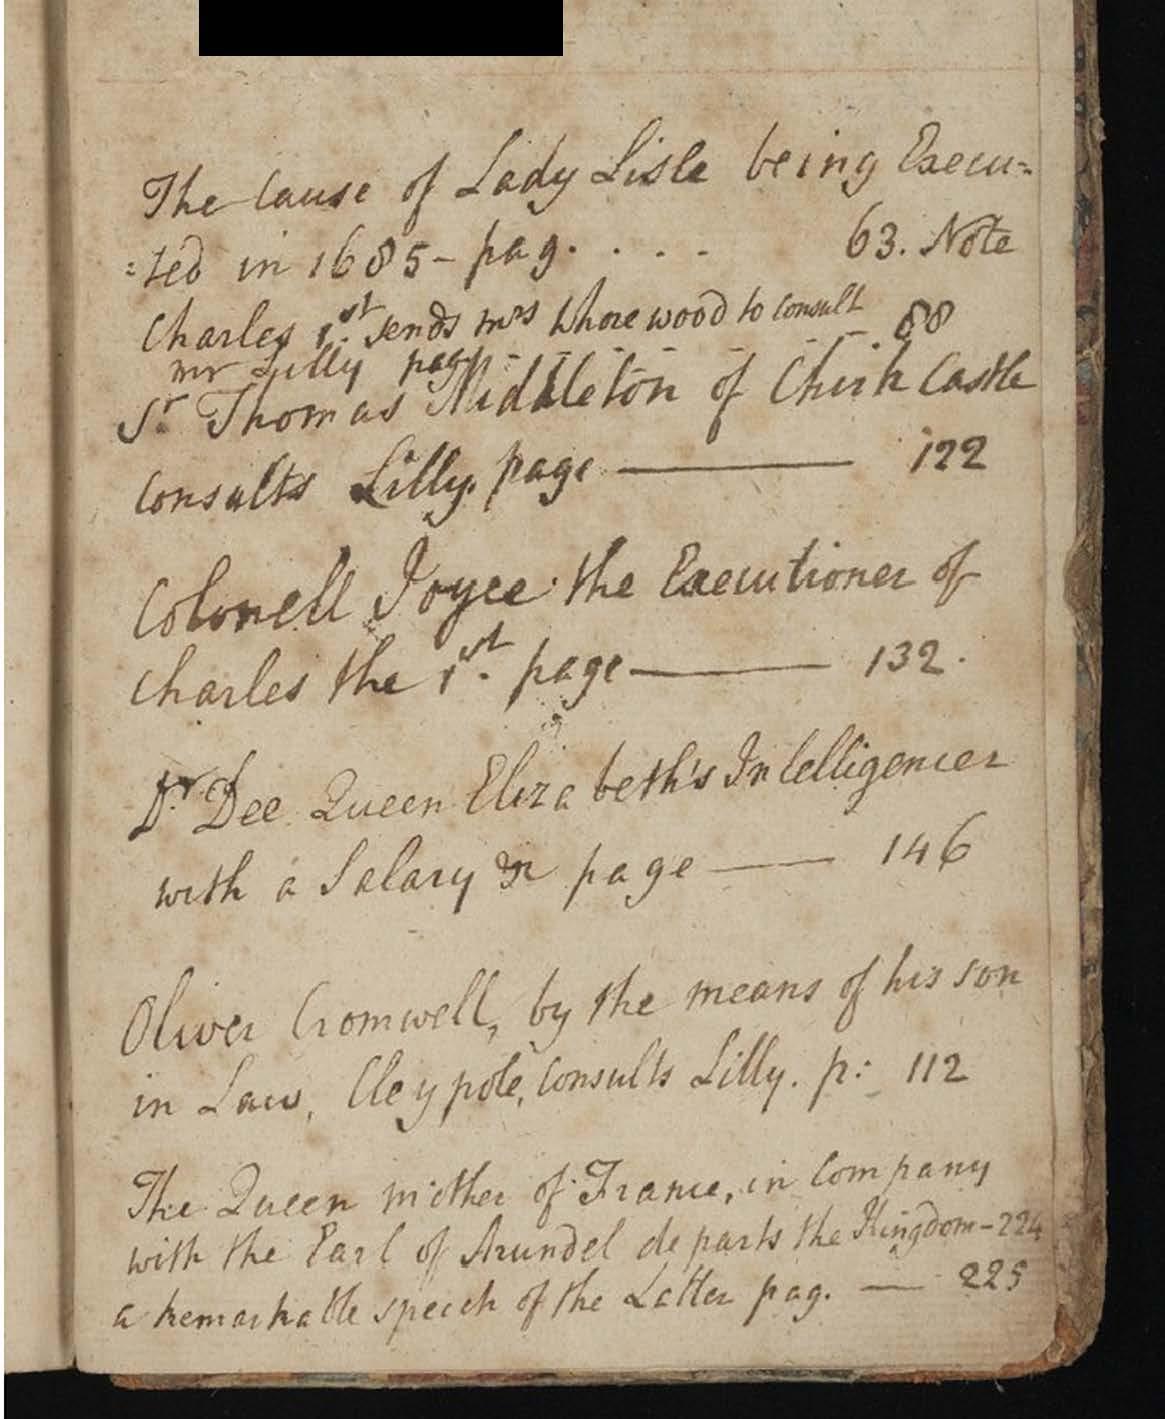 The Cause of Lady Lisle being Execu=
=ted in 1685- pag. . . . - 63. Note
Charles 1st. sends mrs Whorewood to Consult
mr Lilly pag - - - - - - 88
Sr. Thomas Middleton of Chirk Castle
Consults Lilly. page —— 122
Colonell Joyce the Executioner of
Charles the 1st. page —— 132.
Dr. Dee Queen Elizabeth's Intelligencer
with a Salary &c page —— 146
Oliver Cromwell, by the means of his son
in Law, Cleypole, Consults Lilly. p: 112
The Queen mother of France, in Company
with the Earl of Arundel departs the Kingdom - 224
a Remarkable speech of the Latter pag. — 225